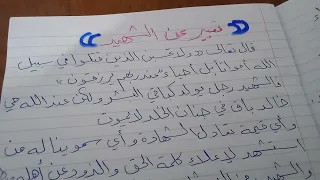 تعبير عن الشهيد
قال تعالى «ولا تحسبن الذين قتلوا في سبيل
الله أمواتا بل أحياء عند ربهم يرزقون»
والشهيد رجل يولد كباقي البشر ولكن عند الله حي
خالد باق في جنان الخلد لا يموت
وأي قيمة تعادل الشهادة وأي سمو يناله من
استشهد لإعلاء كلمة الحق والذود عن أهله